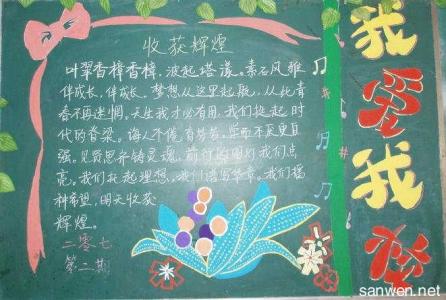 收获辉煌
叶翠香樟香樟,波起塔漾,素石风雅
伴成长,伴成长。梦想从这里起航,从此青
春不再迷惘。天生我才必有用,我们挺起时
代的脊梁。诲人不倦,学而不厌更自
强。见贤思齐铸灵魂,前行的明灯我们点
亮。我们托起理想,我们谱写华章。我们播
种希望,明天收获
辉煌。
二零零七
第二期
我爱我校
sanwen.net